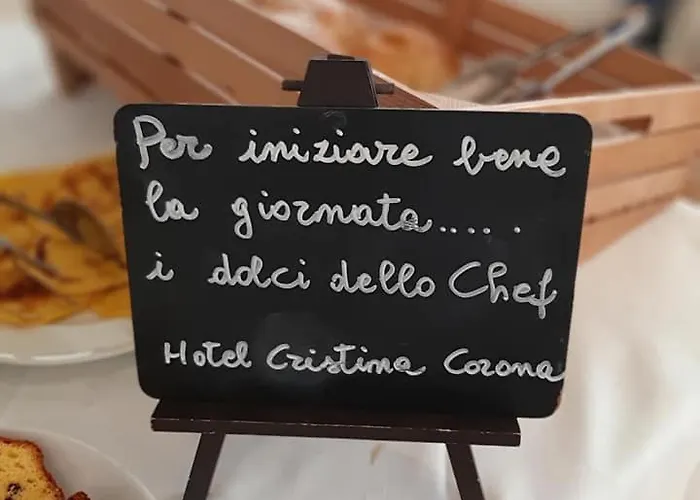 Per iniziare bene
la giornata.....
i dolci dello Chef
Hotel Cristina Corona